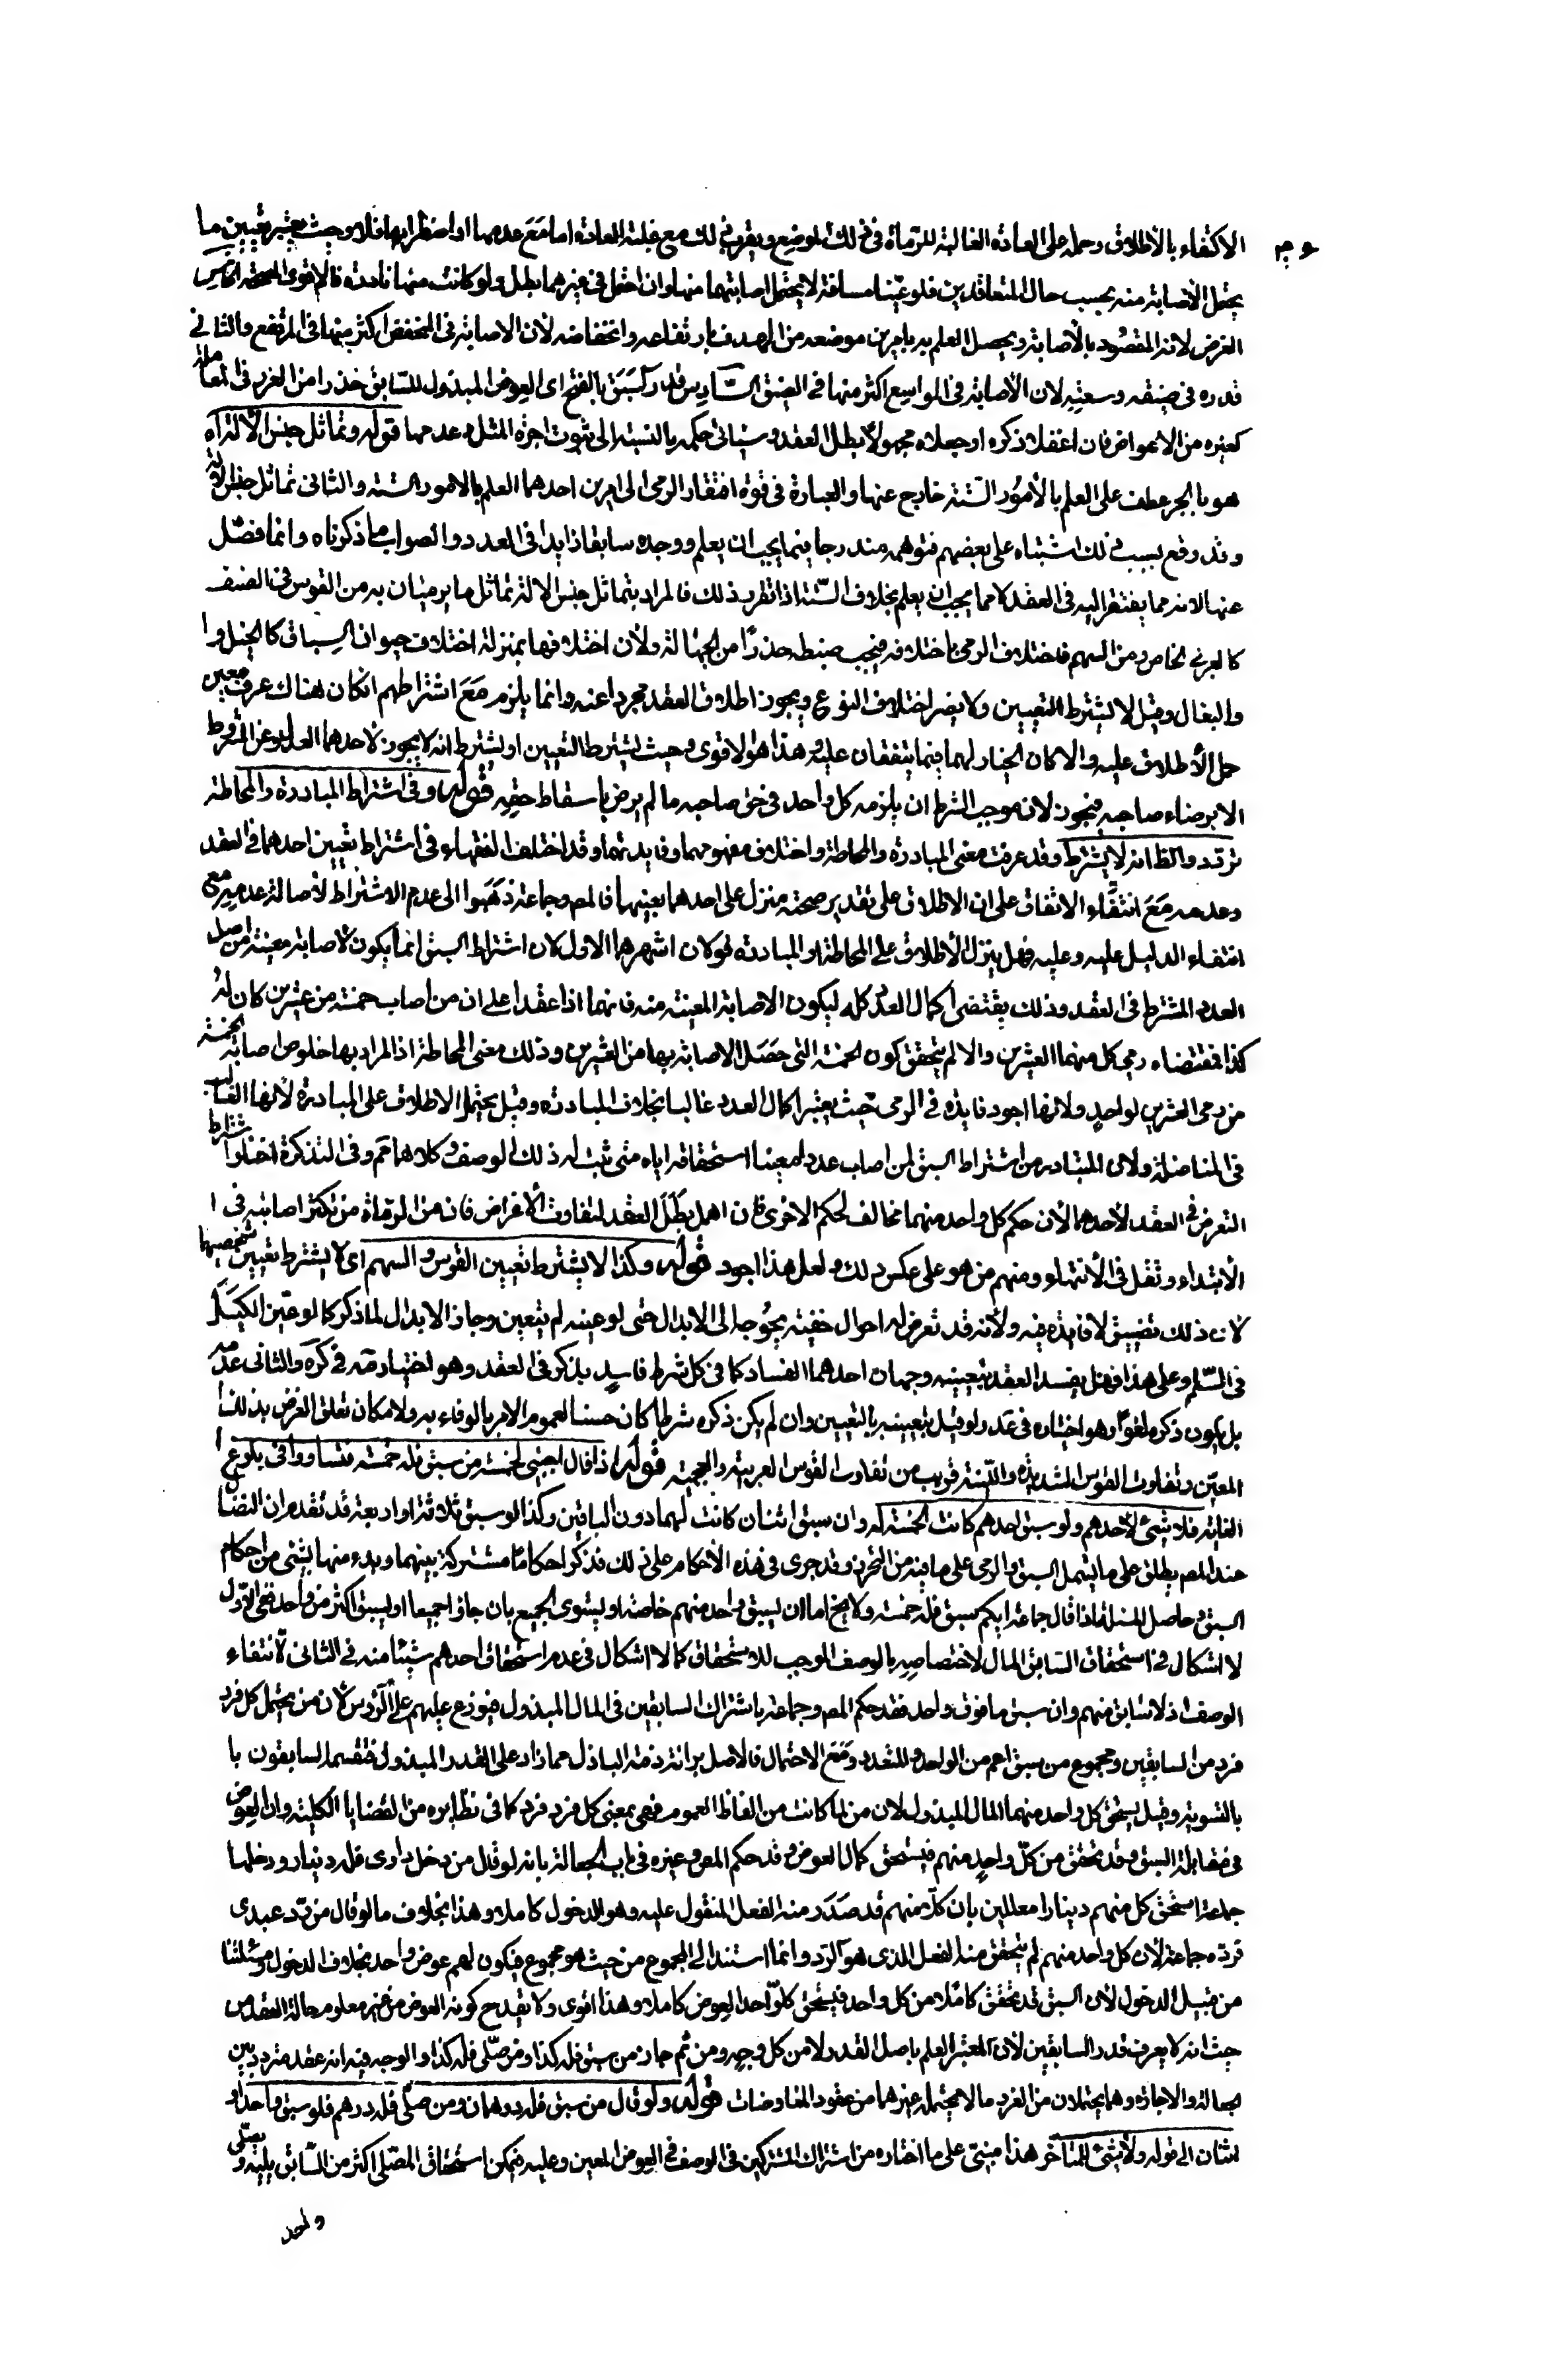 الاكتفاء بالأطلاق وحمله على العادة الغالبة للرماة في ذلك الموضع ويقرب ذلك مع غلبة العادة اما مَعَ عدمها او اضطرابها فلا وحيث يعتبر تعيين ما
يحتمل الأصابة منه بحسب حال المتعاقدين فلو عيّنا مسافة لا يحتمل اصابتهما منها وان احتمل في غيرهما بطل ولو كانت منها نادرة فالاقوى الصحة الخامس
الغرض لانه المقصُود بالأصابة ويحصل العلم به بامرين موضعه من الهدف بارتفاعه وانخفاضه لأن الاصابة في المنخفض اكثر منها في المرتفع والثاني
قدره في ضيقه وسعتِهِ لان الأصابة في المواسع اكثر منها في الضيق السَّادِس قدر السَبَق بالفتح اى العِوض المبذول للسّابق حذرا من الغرر في المعاملة
كغيره من الاعواض فان اغفلا ذكره او جعلاه مجهولًا بطل العقد وسيأتى حكمه بالنسبة الى ثبوت اجرة المثل وعدمها قوله وتماثل جنس الالة آه
هو بالجر عطف على العلم بالأمُور السّتة خارج عنها والعبارة في قوة افتقار الرمى الى امرين احدهما العلم بالامور الستة والثانى تماثل جنس الالة
وقد وقع بسبب ذلك اشتباه على بعضهم فتوهمه مندرجا فيما يجب ان يعلم ووجده سابقا زايدا في العدد والصواب ما ذكرناه وانما فصّل
عنها لانه مما يفتقر اليه في العقد لا مما يجب ان يعلم بخلاف السّتة اذا تقرر ذلك فالمراد بتماثل جنس الالة تماثل ما يرميان به من القوس في الصنف
كالعربي الخاص ومن السهم فاختلاف الرمى باختلافه فيجب ضبطه حذرًا من الجهالة ولأن اختلافها بمنزلة اختلاف حيوان السِباق كالخيل وا
والبغال وقيل لا يشترط التعيين ولا يضر اختلاف النوع ويجوز اطلاق العقد مجردا عنه وانما يلزم مَعَ اشتراطهم ان كان هناك عرف معين
حمل الأطلاق عليه والا كان الخيار لهما فيما يتفقان عليه وهذا هو الاقوى وحيث اشترط التعيين او يشترط انه لا يجوز لاحدهما العدول عن المشروط
الا برضاء صاحبه فيجوز لان موجب الشرط ان يلزمه كل واحد في حق صاحبه ما لم يرض باسقاط حقِه قوله وفى اشتراط المبادرة والمحاطة
تردد والظ انه لا يشترط وقد عرفت معنى المبادرة والمحاطة واختلاف مفهومهما وفايدتهما وقد اختلف الفقهاء في اشتراط تعيين احدهما في العقد
وعدمه مَعَ انتفاء الاتفاق على ان الاطلاق على تقدير صحته منزل على احدهما بعينها فالمص وجماعة ذَهَبوا الى عدم الاشتراط لأصالة عدمه مع
انتفاء الدليل عليه وعليه فهل ينزل الأطلاق على المحاطة او المبادرة قولان اشهرهما الاول لان اشتراط السبق انما يكون لأصابة معينة من اصل
العدد المشترط في العقد وذلك يقتضى اكمال العدد كله ليكون الاصابة المعينة منه فانهما اذا عقدا على ان من اصاب خمسة من عشرين كان لهُ
كذا فمقتضاه رمى كل منهما العشرين والا لم يتحقق كون الخمسة التى حَصَل الاصابة بها من العشرين وذلك معنى المحاطة اذ المراد بها خلوص اصابة الخمسة
من رمى العشرين لواحدٍ ولانها اجود فايدة في الرمى حيث يعتبر اكمال العدد غالبا بخلاف المبادرة وقيل يحمل الاطلاق على المبادرة لأنها الغالب
في المناضلة ولان المتبادر من اشتراط السبق لمن اصاب عددا معينا استحقاقه اياه متى ثبت له ذلك الوصف وكلاهما مم وفى التذكرة اختار اشتراط
التعرض في العقد لأحدهما لأن حكم كل واحد منهما مخالف لحكم الاخرى فان اهمل بَطَل العقد لتفاوت الأغراض فان من الرماة من تكثر اصابته في ا
الأبتداء وتقل في الأنتهاء ومنهم من هو على عكس ذلك ولعل هذا اجود قوله وكذا لا يشترط تعيين القوس والسهم اى لا يشترط تعيين شخصيهما
لان ذلك تضييق لا فايدة فيه ولأنه قد تعرض له احوال خفية يحوُجه الى الابدال حتى لو عينه لم يتعين وجاز الابدال لما ذكر كما لو عيّن المكيَل
في السّلم وعلى هذا فهل يفسد العقد بتعيينه وجهان احدهما الفساد كما في كل شرط فاسِدٍ يذكر في العقد وهو اختياره في كره والثانى عدمه
بل يكون ذكره لغواً وهو اختياره في عَد ولو قيل بتعيينه بالتعيين وان لم يكن ذكره شرطا كان حسنا لعموم الامر بالوفاء به ولامكان تعلق الغرض بذلك ا
المعيّن وتفاوت القوس الشديدة واللّينة قريب من تفاوت القوس العربية والعجمية قوله اذا قال اجنبى لخمسة من سبق فله خمسة فتساووا في بلوغ ا
الغاية فلا شىء لأحدهم ولو سبق احدهم كانت الخمسة له وان سبق اثنان كانت لهما دون الباقين وكذا لو سبق ثلاثة او اربعة قد تقدم ان النضال
عند المص يطلق على ما يشمل السبق والرمى على ما فيه من التحرز وقد جرى في هذه الأحكام على ذلك فذكر احكامًا مشتركة بينهما وبدء منها بشىء من احكام
السبق وحاصل المسئلة اذا قال جماعة ايكم سبق فله خمسة ولا يخ اما ان يسبق واحد منهم خاصة او يستوى الجميع بان جاؤا جميعا او يسبق اكثر من واحد ففى الاوّل
لا اشكال في استحقاق السّابق المال لاختصاصِهِ بالوصف الموجب للاستحقاق كما لا اشكال في عدم استحقاق احدهم شيئا منه في الثانى لأنتفاء
الوصف اذ لا سابق منهم وان سبق ما فوق واحد فقد حكم المص وجماعة باشتراك السابقين في المال المبذول فيوزع عليهم على الرّؤس لان من يحتمل كل فرد
فرد من السابقين ومجموع من سبق اعم من الواحد والمتعدد ومَعَ الاحتمال فالاصل برائة ذمة الباذل عما زاد على القدر المبذول فتقسمه السابقون با
بالتسوية وقيل يستحق كل واحد منهما المال المبذول لان من لما كانت من الفاظ العموم فهى بمعنى كل فرد فرد كما في نظايره من القضايا الكلية وان العِوض
في مقابلة السبق وقد تحقق من كلّ واحدٍ منهم فيستحق كمال العوض وقد حكم المص وغيره في باب الجعالة بانه لو قال من دخل دارى فله دينار ودخلها
جماعة استحق كل منهم دينارا معللين بان كلّا منهم قد صَدَر منه الفعل المنقول عليه وهو الدخول كاملا وهذا بخلاف ما لو قال من ردّ عبدى
فردّه جماعة لأن كل واحد منهم لم يتحقق منه الفعل الذى هو الرّد وانما استند الى المجموع من حيث هو مجموع فيكون لهم عوض واحد بخلاف الدخول ومسئلتنا
من قبيل الدخول لأن السبق قد تحقق كاملًا من كل واحد فيستحق كلّ واحد العِوض كاملا وهذا اقوى ولا يقدح كونه العوض من غير معلوم حالة العقد من
حيث انه لا يعرف قدر السابقين لأن المعتبر العلم باصل القدر لا من كل وجهٍ ومن ثم جاز من سبق فله كذا ومن صلّى فله كذا والوجه فيه انه عقد متردد بين
الجعالة والاجارة وهما يحتملان من الغرر ما لا يحتمله غيرهما من عقود المعاوضات قوله ولو قال من سبق فله درهمان ومن صلّى فله درهم فلو سبق واحد او
اثنان الى قوله ولا شىء للمتأخر هذا مبنىّ على ما اختاره من اشتراك المشتركين في الوصف في العِوض المعين وعليه فيمكن استحقاق المصلّى اكثر من السّابق بان يصلّى
واحد